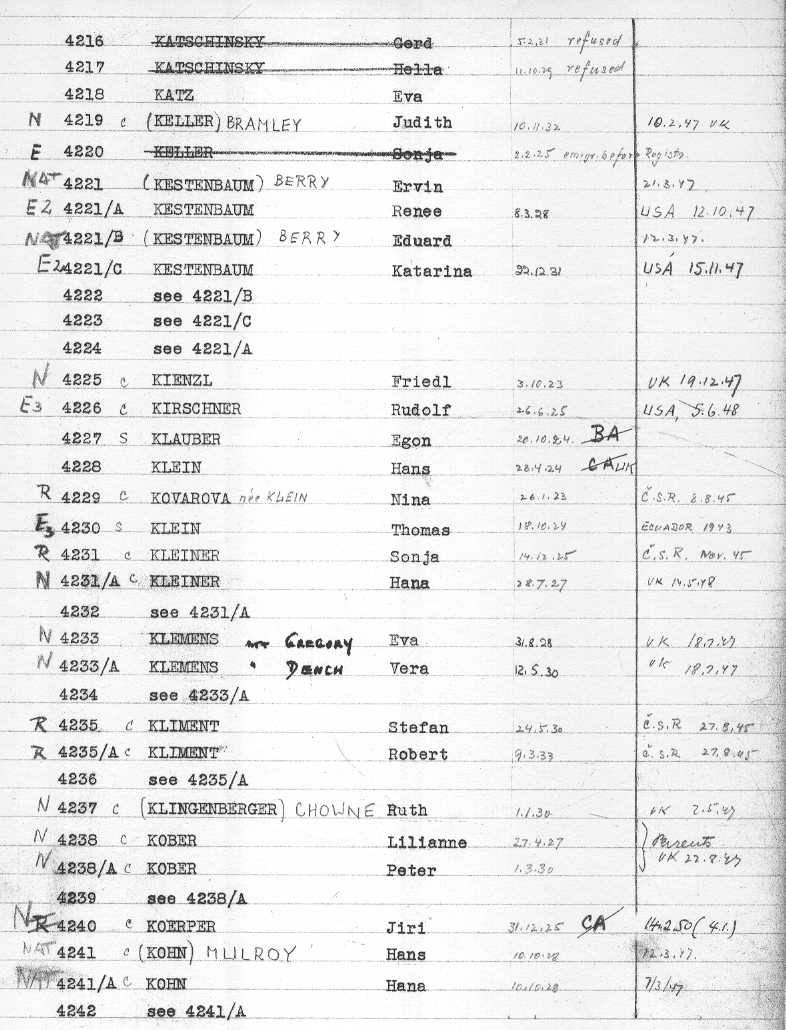 4216 KATSCHINSKY Gerd 5.2.31 refused
4217 KATSCHINSKY Hella 11.10.29 refused
4218 KATZ Eva
N 4219 c (KELLER) BRAMLEY Judith 10.11.32 10.2.47 UK
E 4220 KELLER Sonja 2.2.25 emigr. before Registr.
NAT 4221 (KESTENBAUM) BERRY Ervin 21.3.47
E2 4221/A KESTENBAUM Renee 8.3.28 USA 12.10.47
NAT 4221/B (KESTENBAUM) BERRY Eduard 12.3.47.
E2 4221/C KESTENBAUM Katarina 22.12.31 USA 15.11.47
4222 see 4221/B
4223 see 4221/C
4224 see 4221/A
N 4225 c KIENZL Friedl 3.10.23 UK 19.12.47
E3 4226 c KIRSCHNER Rudolf 26.6.25 USA, 5.6.48
4227 S KLAUBER Egon 20.10.24. BA
4228 KLEIN Hans 28.4.24 CA UK
R 4229 c KOVAROVA née KLEIN Nina 26.1.23 Č.S.R. 8.8.45
E3 4230 S KLEIN Thomas 18.10.24 ECUADOR 1943
R 4231 c KLEINER Sonja 14.12.25 Č.S.R. Nov. 45
N 4231/A c KLEINER Hana 28.7.27 UK 14.5.48
4232 see 4231/A
N 4233 KLEMENS GREGORY Eva 31.8.28 UK 18.7.47
N 4233/A KLEMENS " DENCH Vera 12.5.30 UK 18.7.47
4234 see 4233/A
R 4235 c KLIMENT Stefan 24.5.30 Č.S.R 27.8.45
R 4235/A c KLIMENT Robert 9.3.33 Č.S.R 27.8.45
4236 see 4235/A
N 4237 c (KLINGENBERGER) CHOWNE Ruth 1.1.30 UK 2.5.47
N 4238 c KOBER Lilianne 27.4.27 Parents
N 4238/A c KOBER Peter 1.3.30 UK 22.8.47
4239 see 4238/A
N R 4240 c KOERPER Jiri 31.12.25 CA 14.2.50 (4.1.)
NAT 4241 c (KOHN) MULROY Hans 10.10.28 12.3.47.
NAT 4241/A c KOHN Hana 10.10.28 7/3/47
4242 see 4241/A